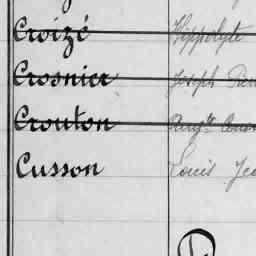 Croizé Hippolyte
Crosnier Joseph
Crouton
Cusson Louis
D